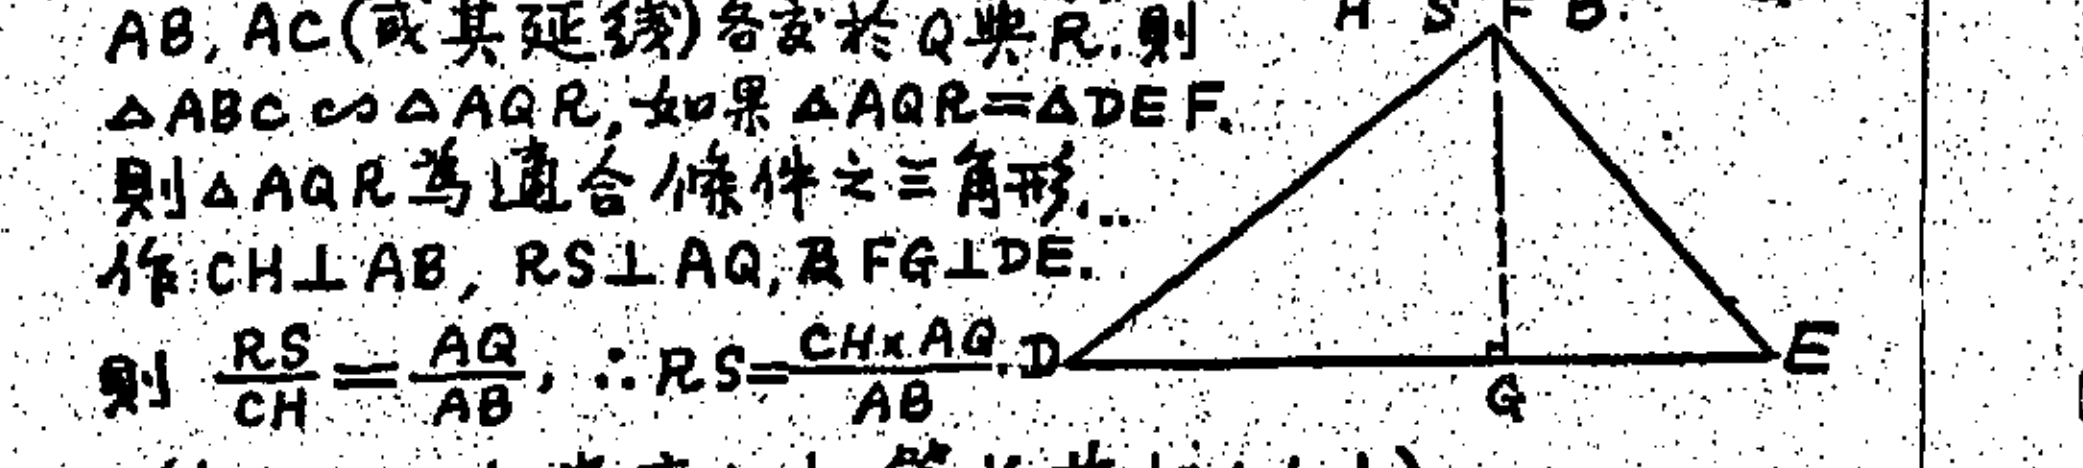 AB, AC(或其延线)各交於Q與R.則
△ABC∽△AQR,如果△AQR=△DEF.
則△AQR為適合條件之三角形...
作CH⊥AB, RS⊥AQ,及FG⊥DE.
則 RS/CH=AQ/AB, ∴RS=CH×AQ/AB.
H S F B.
D
E
G